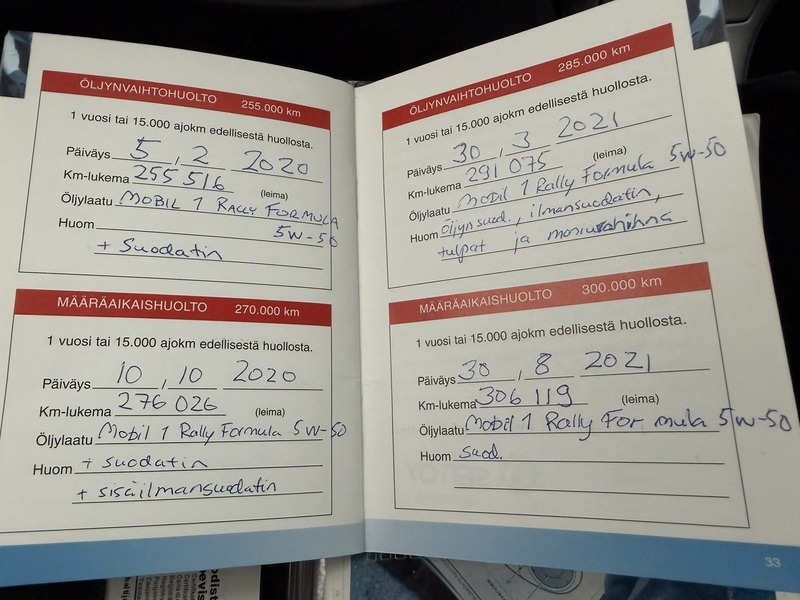 ÖLJYNVAIHTOHUOLTO 255.000 km
1 vuosi tai 15.000 ajokm edellisestä huollosta.
Päiväys 5 , 2 2020
Km-lukema 255 516 (leima)
Öljylaatu MOBIL 1 RALLY FORMULA
5W-50
Huom
+ Suodatin
MÄÄRÄAIKAISHUOLTO 270.000 km
1 vuosi tai 15.000 ajokm edellisestä huollosta.
Päiväys 10 , 10 2020
Km-lukema 276 026 (leima)
Öljylaatu Mobil 1 Rally Formula 5W-50
Huom + suodatin
+ sisäilmansuodatin
ÖLJYNVAIHTOHUOLTO 285.000 km
1 vuosi tai 15.000 ajokm edellisestä huollosta.
Päiväys 30 , 3 2021
Km-lukema 291 075 (leima)
Öljylaatu Mobil 1 Rally Formula 5W-50
Huom öljynsuod., ilmansuodatin,
tulpat ja moniurahihna
MÄÄRÄAIKAISHUOLTO 300.000 km
1 vuosi tai 15.000 ajokm edellisestä huollosta.
Päiväys 30 , 8 2021
Km-lukema 306 119 (leima)
Öljylaatu Mobil 1 Rally For mula 5W-50
Huom suod.
33